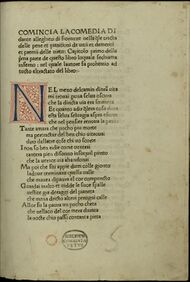 COMINCIA LA COMEDIA DI
dante alleghieri di fiorenze nella q̄le tracta
delle pene et punitioni de uitii et demeriti
et premii delle uirtu: Capitolo primo della
p̄ma parte de questo libro loquale sechiama
inferno : nel quale lautore fa prohemio ad
tucto eltractato del libro:
NEL mezo delcamin dinr̄a uita
mi trouai p̄una selua oscura
che la diricta uia era smarrita
Et quanto adir q̄lera cosa dura
esta selua seluaggia aspra eforte
che nel pensier renoua la paura
Tante amara che pocho piu morte
ma pertractar del ben chio uitrouai
diro dellaltre cose chi uo scorte
I non so ben ridir come uentrai
tantera pien disonno insuquil punto
che la uerace uia abandonai
Ma poi che fui appie dum colle gionto
ladoue terminaua quella ualle
che mauea dipaura el cor compuncto
Guardai inalto et uidde le sue spalle
uestite gia deraggi del pianeta
che mena dricto altrui perogni calle
Allor fu la paura un pocho cheta
che nellaco del cor mera durata
la nocte chio passai contanta pieta